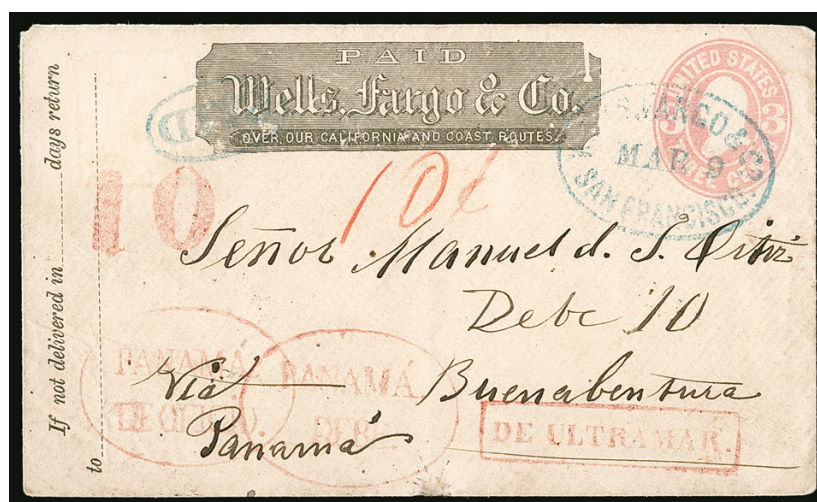 If not delivered in
days return
to
PAID
Wells, Fargo & Co.
OVER OUR CALIFORNIA AND COAST ROUTES.
UNITED STATES
3
3
FARGO & CO
MAR 9
SAN FRANCISCO
10
10¢
Señor Manuel d. S. Ortiz
Debe 10
Buenabentura
Via
Panamá
PANAMÁ.
PANAMÁ
DEBE
DE ULTRAMAR.